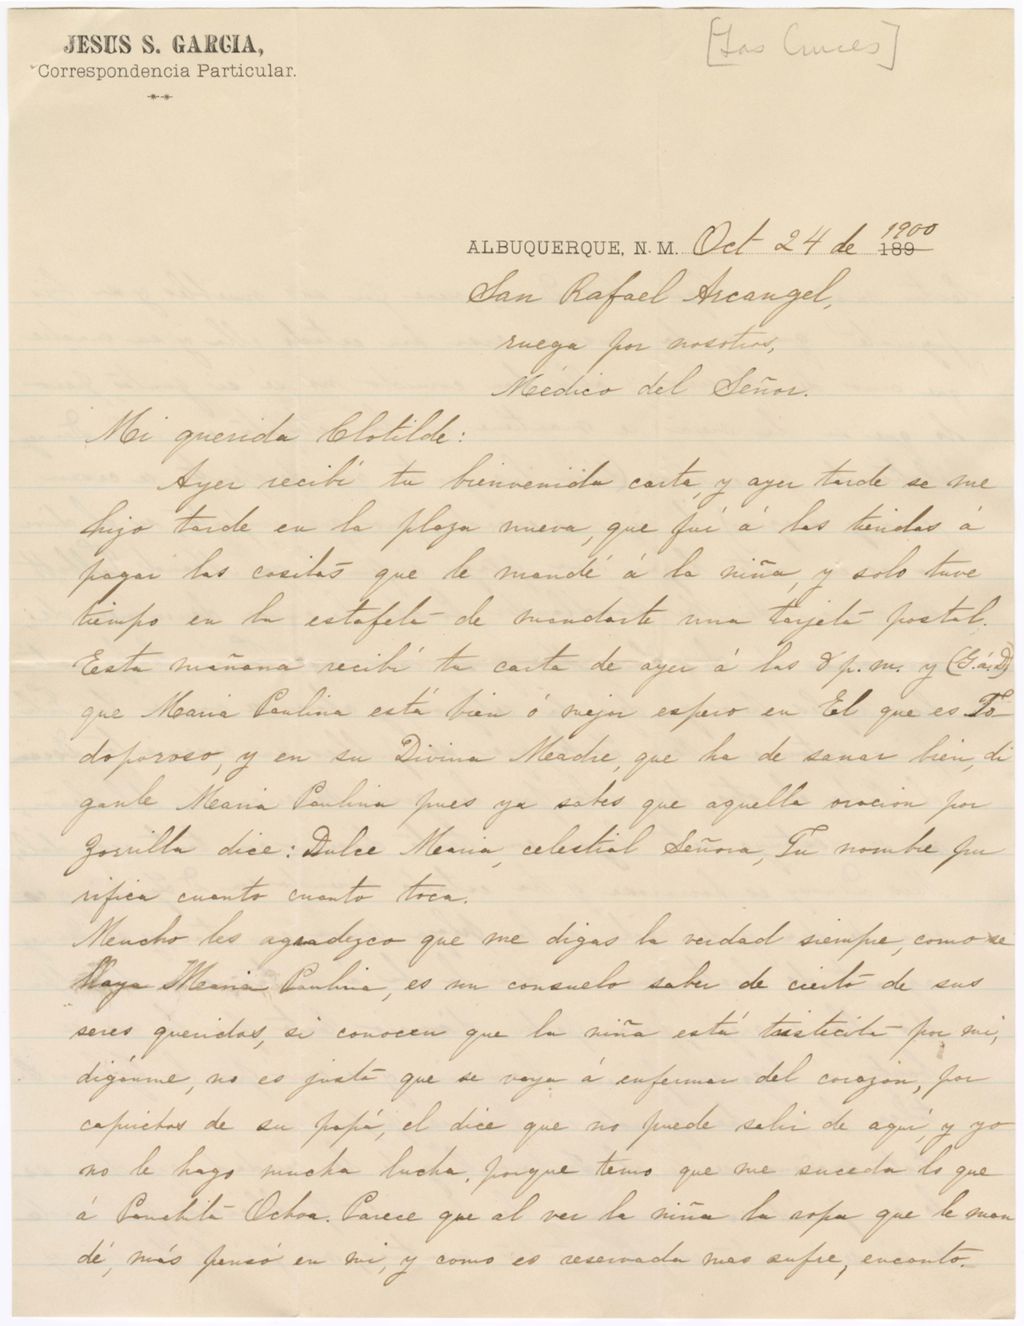 JESUS S. GARCIA,
Correspondencia Particular.
[Las Cruces]
ALBUQUERQUE, N. M. Oct 24 de 1900 189
San Rafael Arcangel,
ruega por nosotros,
Médico del Señor.
Mi querida Clotilde:
Ayer recibí tu bienvenida carta, y ayer tarde se me
hizo tarde en la plaza nueva, que fuí á las tiendas á
pagar las cositas que le mandé á la niña, y solo tuve
tiempo en la estafeta de mandarte una tarjeta postal.
Esta mañana recibí tu carta de ayer á las 8 p.m. y (G. á. D)
que Maria Paulina está bien ó mejor espero en El que es To-
doporoso, y en su Divina Madre, que ha de sanar bien, di
ganle Maria Paulina pues ya sabes que aquella oracion por
Zorrilla dice: Dulce Maria, celestial Señora, Tu nombre pu
rifica cuanto cuanto toca.
Mucho les agradezco que me digas la verdad siempre, como se
haya Maria Paulina, es un consuelo saber de cierto de sus
seres queridos, si conocen que la niña está tristecita por mi,
digánme, no es justo que se vaya á enfermar del corazon, por
caprichos de su papá, el dice que no puede salir de aquí, y yo
no le hago mucha lucha, porque temo que me suceda lo que
á Panchita Ochoa. Parece que al ver la niña la ropa que le man
dé, más pensó en mi, y como es reservada mas sufre, encanto.